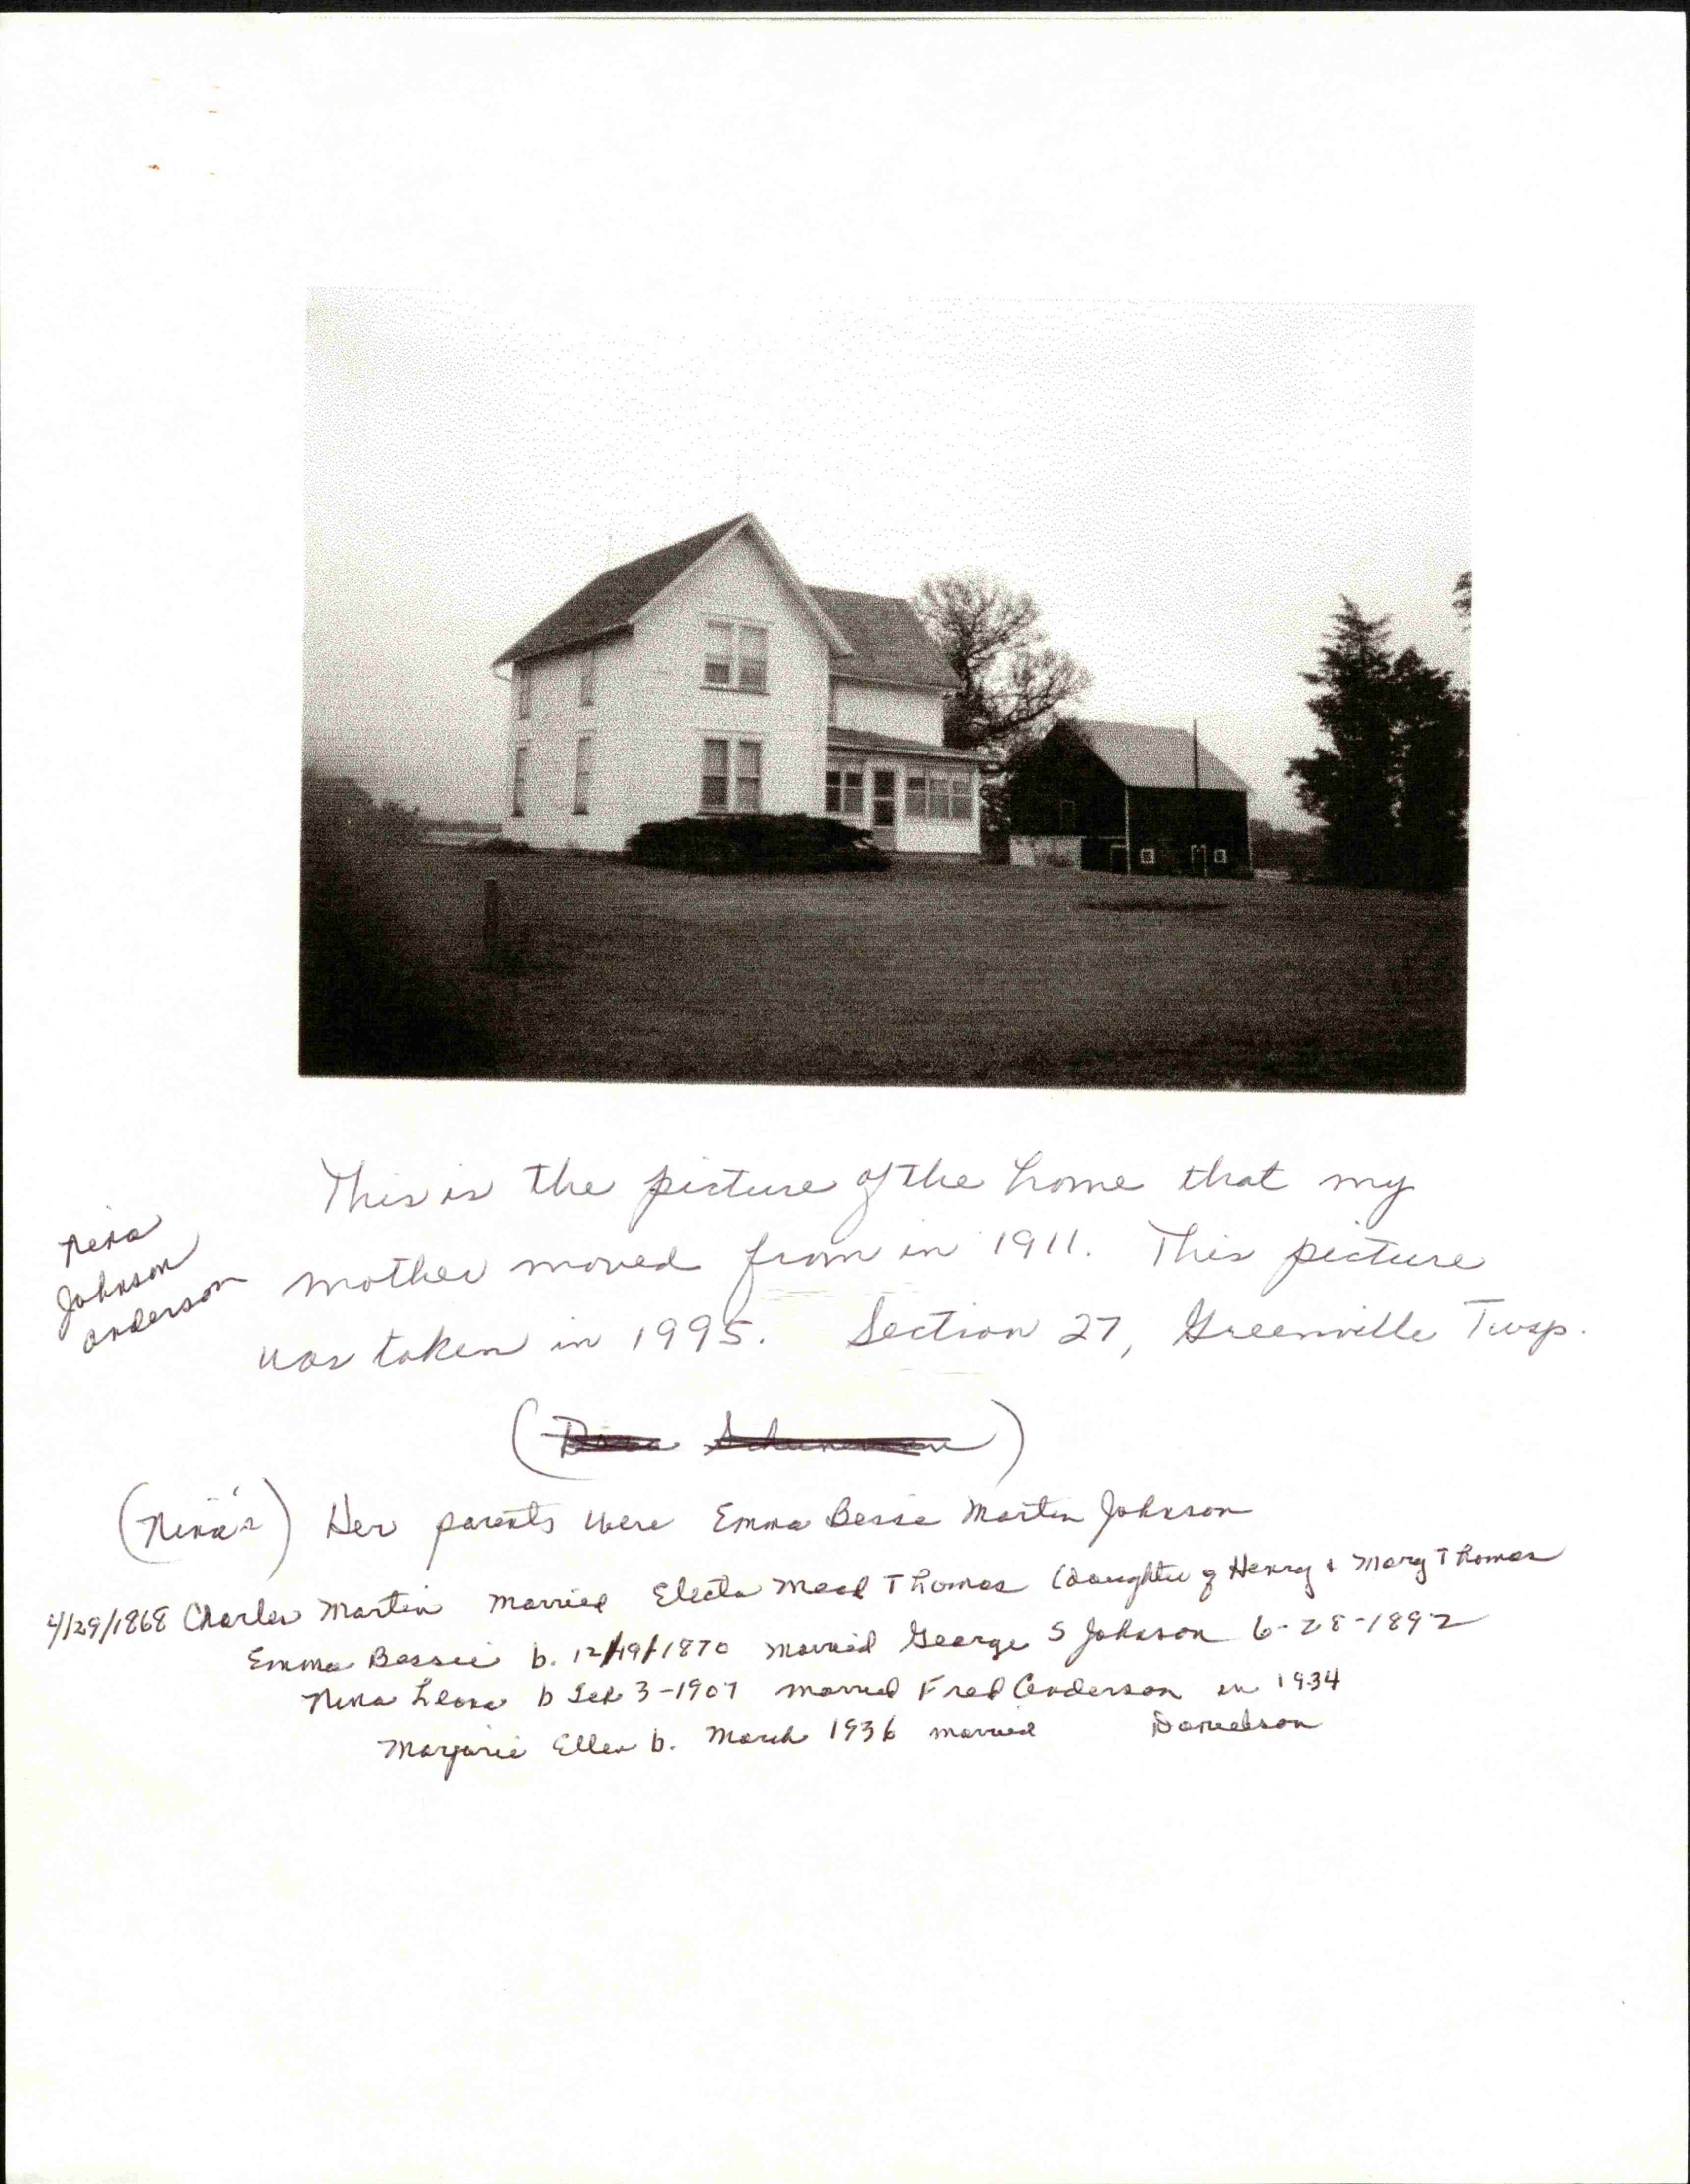 This is the picture of the home that my
Nina
Johnson
Anderson
mother moved from in 1911. This picture
was taken in 1995. Section 27, Greenville Twsp.
(Nina's) Her parents were Emma Besse Martin Johnson
4/29/1868 Charles Martin Married Electa Mead Thomas (daughter of Henry & Mary Thomas
Emma Bessie b. 12/19/1870 married George S Johnson 6-28-1892
Nina Leona b 3-1907 married Fred Anderson in 1934
Marjorie Ellen b. March 1936 married Danielson